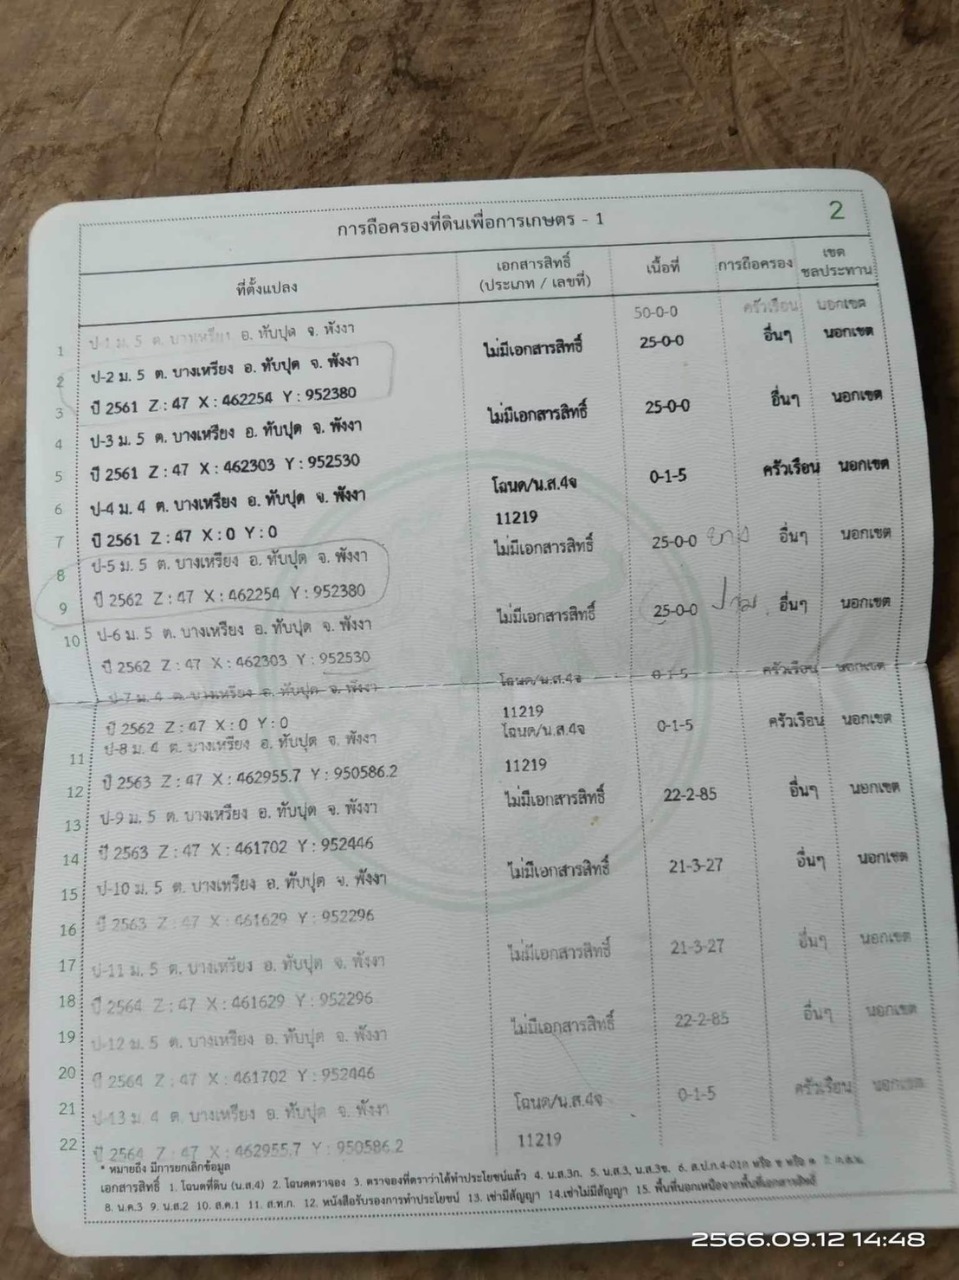 2
การถือครองที่ดินเพื่อการเกษตร - 1
ที่ตั้งแปลง เอกสารสิทธิ์ (ประเภท / เลขที่) เนื้อที่ การถือครอง เขตชลประทาน
1 ป-1 ม. 5 ต. บางเหรียง อ. ทับปุด จ. พังงา 50-0-0 ครัวเรือน นอกเขต
2 ป-2 ม. 5 ต. บางเหรียง อ. ทับปุด จ. พังงา ไม่มีเอกสารสิทธิ์ 25-0-0 อื่นๆ นอกเขต
3 ปี 2561 Z : 47 X : 462254 Y : 952380
4 ป-3 ม. 5 ต. บางเหรียง อ. ทับปุด จ. พังงา ไม่มีเอกสารสิทธิ์ 25-0-0 อื่นๆ นอกเขต
5 ปี 2561 Z : 47 X : 462303 Y : 952530
6 ป-4 ม. 4 ต. บางเหรียง อ. ทับปุด จ. พังงา โฉนด/น.ส.4จ 0-1-5 ครัวเรือน นอกเขต
7 ปี 2561 Z : 47 X : 0 Y : 0 11219
8 ป-5 ม. 5 ต. บางเหรียง อ. ทับปุด จ. พังงา ไม่มีเอกสารสิทธิ์ 25-0-0 ยาง อื่นๆ นอกเขต
9 ปี 2562 Z : 47 X : 462254 Y : 952380
10 ป-6 ม. 5 ต. บางเหรียง อ. ทับปุด จ. พังงา ไม่มีเอกสารสิทธิ์ 25-0-0 ปาม อื่นๆ นอกเขต
ปี 2562 Z : 47 X : 462303 Y : 952530
ป-7 ม. 4 ต. บางเหรียง อ. ทับปุด จ. พังงา โฉนด/น.ส.4จ 0-1-5 ครัวเรือน นอกเขต
ปี 2562 Z : 47 X : 0 Y : 0 11219
11 ป-8 ม. 4 ต. บางเหรียง อ. ทับปุด จ. พังงา โฉนด/น.ส.4จ 0-1-5 ครัวเรือน นอกเขต
12 ปี 2563 Z : 47 X : 462955.7 Y : 950586.2 11219
13 ป-9 ม. 5 ต. บางเหรียง อ. ทับปุด จ. พังงา ไม่มีเอกสารสิทธิ์ 22-2-85 อื่นๆ นอกเขต
14 ปี 2563 Z : 47 X : 461702 Y : 952446
15 ป-10 ม. 5 ต. บางเหรียง อ. ทับปุด จ. พังงา ไม่มีเอกสารสิทธิ์ 21-3-27 อื่นๆ นอกเขต
16 ปี 2563 Z : 47 X : 461629 Y : 952296
17 ป-11 ม. 5 ต. บางเหรียง อ. ทับปุด จ. พังงา ไม่มีเอกสารสิทธิ์ 21-3-27 อื่นๆ นอกเขต
18 ปี 2564 Z : 47 X : 461629 Y : 952296
19 ป-12 ม. 5 ต. บางเหรียง อ. ทับปุด จ. พังงา ไม่มีเอกสารสิทธิ์ 22-2-85 อื่นๆ นอกเขต
20 ปี 2564 Z : 47 X : 461702 Y : 952446
21 ป-13 ม. 4 ต. บางเหรียง อ. ทับปุด จ. พังงา โฉนด/น.ส.4จ 0-1-5 ครัวเรือน นอกเขต
22 ปี 2564 Z : 47 X : 462955.7 Y : 950586.2 11219
* หมายถึง มีการยกเลิกข้อมูล
เอกสารสิทธิ์ 1. โฉนดที่ดิน (น.ส.4) 2. โฉนดตราจอง 3. ตราจองที่ตราว่าได้ทำประโยชน์แล้ว 4. น.ส.3ก. 5. น.ส.3, น.ส.3ข. 6. ส.ป.ก.4-01ก หรือ ข หรือ ค
8. น.ค.3 9. น.ส.2 10. ส.ค.1 11. ส.ท.ก. 12. หนังสือรับรองการทำประโยชน์ 13. เช่ามีสัญญา 14.เช่าไม่มีสัญญา 15. พื้นที่นอกเหนือจากพื้นที่เอกสารสิทธิ์
2566.09.12 14:48